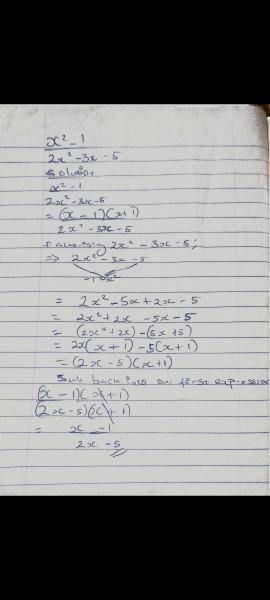 x² - 1
2x² - 3x - 5
Solution
x² - 1
2x² - 3x - 5
= (x - 1)(x + 1)
2x² - 3x - 5
factorising 2x² - 3x - 5;
⇒ 2x² - 3x - 5
-10x²
= 2x² - 5x + 2x - 5
= 2x² + 2x - 5x - 5
= (2x² + 2x) - (5x + 5)
= 2x(x + 1) - 5(x + 1)
= (2x - 5)(x + 1)
Sub back into our first expression
(x - 1)(x + 1)
(2x - 5)(x + 1)
= x - 1
2x - 5